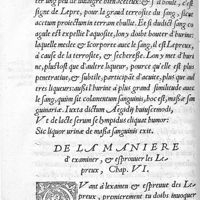 ter ung peu de vinaigre bien acéteux: & s'il boult, c'est
signe de Lepre, pour la grand terrosité du sang, sicut
accetum proiectum in terram ebullit. Et si audict sang co
agulé est expellé l'aquosité, lon y doibt bouter d'urine:
laquelle meslee & icorporee avec le sang, il est Lepreux,
à cause de la terrosité, & secheresse. Lon y met d'huri
ne, plustost que d'aultre liqueur, pource qu'elle est plus
penetrative, & subtile, participãt d'acuité, plus que aul
tres liqueurs: aussi l'hurine à plus grand similitude avec
le sang, quum sit colamentum sanguinis, hoc est, massæ san
guinariæ. Iuxta dictum Aegidij huiuscemodi,
Vt de lacte serum se lympidus eliquat humor:
Sic liquor urinæ de massa sanguinis exit.
DE LA MANIERE
d'examiner, & esprouver les Le-
preux, Chap. VI.
Quant à l'examen & espreuve des Le-
preux, premierement tu doibs invoquer